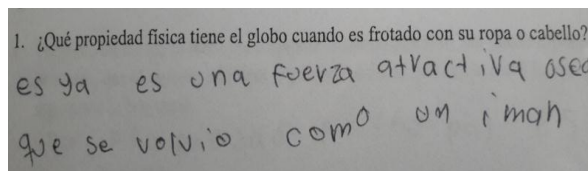 1. ¿Qué propiedad física tiene el globo cuando es frotado con su ropa o cabello?
es ya es una fuerza atractiva osea
que se volvio como un iman